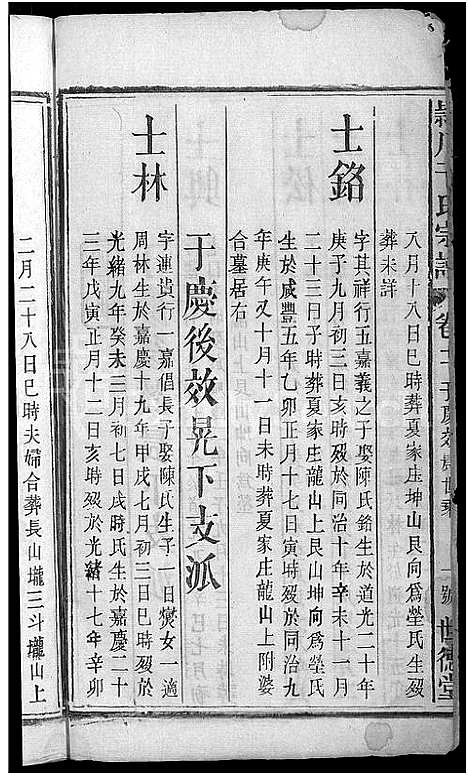 潁川于氏宗譜 卷十一 于慶 世德堂
八月十八日巳時葬夏家庄坤山艮向為塋氏生歿
葬未詳
士銘
字其祥行五嘉義之子娶陳氏銘生於道光二十年
庚子九月初三日亥時歿於同治十年辛未十一月
二十三日子時葬夏家庄龍山上艮山坤向為塋氏
生於咸豐五年乙卯正月十七日寅時歿於光緒八
年庚午又十月十一日未時葬夏家庄龍山上附婆
合墓居右
于慶後效晃下支派
士林
字連貴行一嘉倡長子娶陳氏生子一日爕女一適
周林生於嘉慶十九年甲戌七月初三日巳時歿於
光緒九年癸未三月初七日戌時氏生於嘉慶二十
三年戊寅正月十二日亥時歿於光緒十七年辛卯
二月二十八日巳時夫婦合葬長山壠三斗壠山上